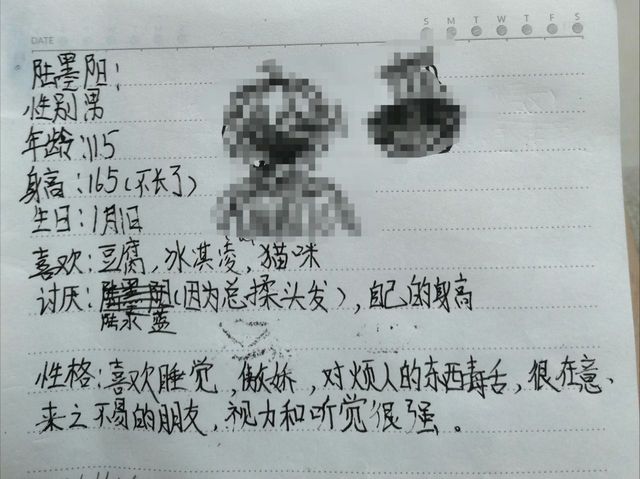 DATE S M T W T F S
陆墨阳：
性别男
年龄：115
身高：165（不长了）
生日：1月1日
喜欢：豆腐，冰淇凌，猫咪
讨厌：陆墨阳（因为总揉头发），自己的身高
陆承蓝
性格：喜欢睡觉，傲娇，对烦人的东西毒舌，很在意、
来之不易的朋友，视力和听觉很强。